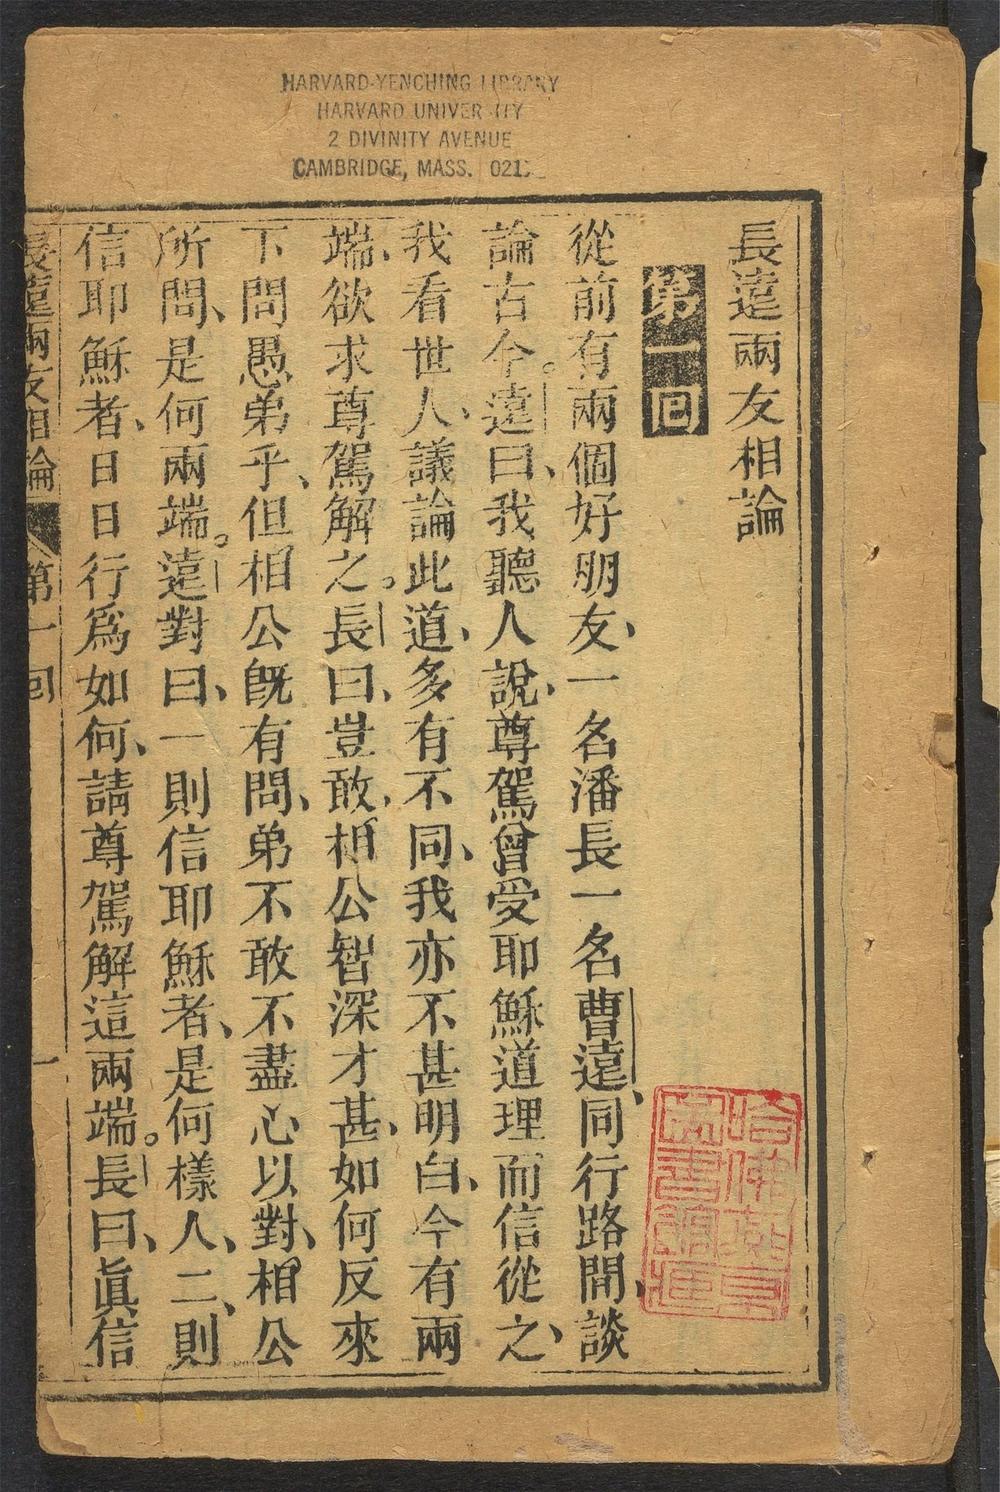 HARVARD-YENCHING LIBRARY
HARVARD UNIVERSITY
2 DIVINITY AVENUE
CAMBRIDGE, MASS. 021
長遠兩友相論
第一回
從前有兩個好朋友、一名潘長一名曹遠、同行路間、談
論古今。遠曰、我聽人說、尊駕曾受耶穌道理而信從之、
我看世人、議論此道、多有不同、我亦不甚明白、今有兩
端、欲求尊駕解之。長曰、豈敢、相公智深才甚、如何反來
下問愚弟乎、但相公既有問、弟不敢不盡心以對、相公
所問、是何兩端。遠對曰、一則信耶穌者、是何樣人、二則
信耶穌者、日日行爲如何、請尊駕解這兩端。長曰、眞信
長遠兩友相論 第一回 一
哈佛燕京
圖書館藏